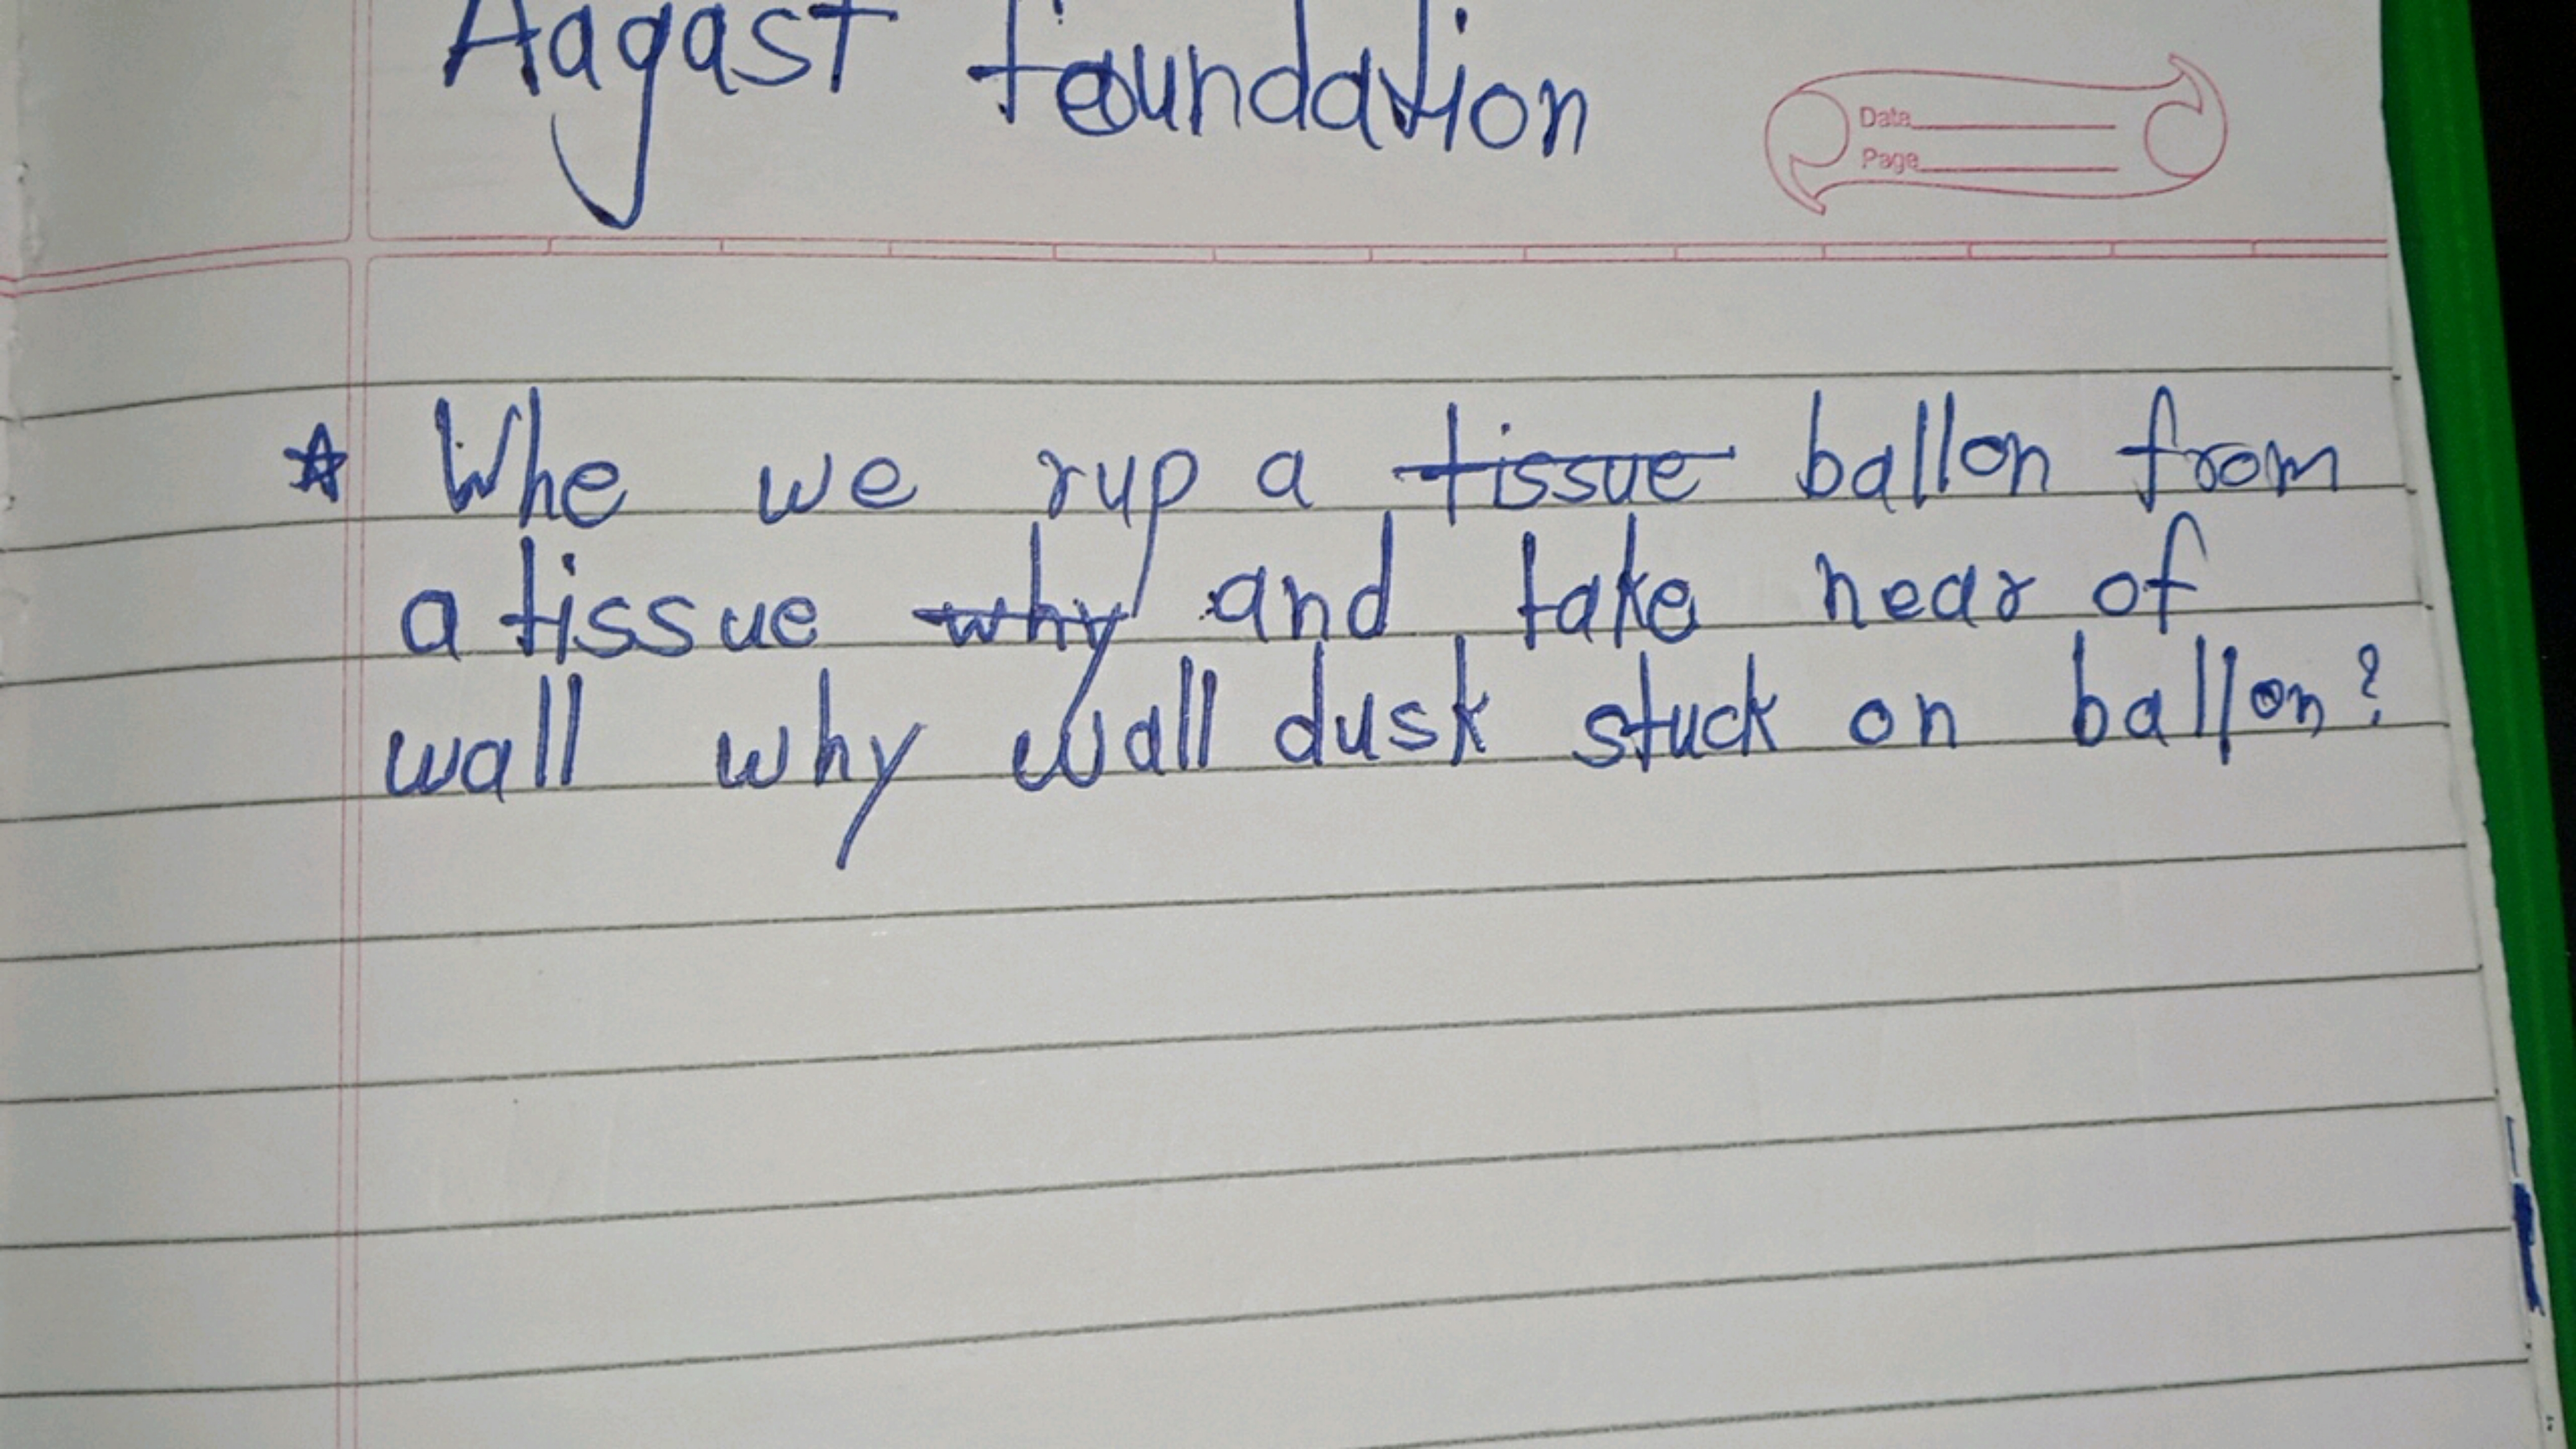 Aagast foundation
Date
Page
☆ Whe we rup a tissue ballon from
a tissue why and take near of
wall why wall dusk stuck on ballon?